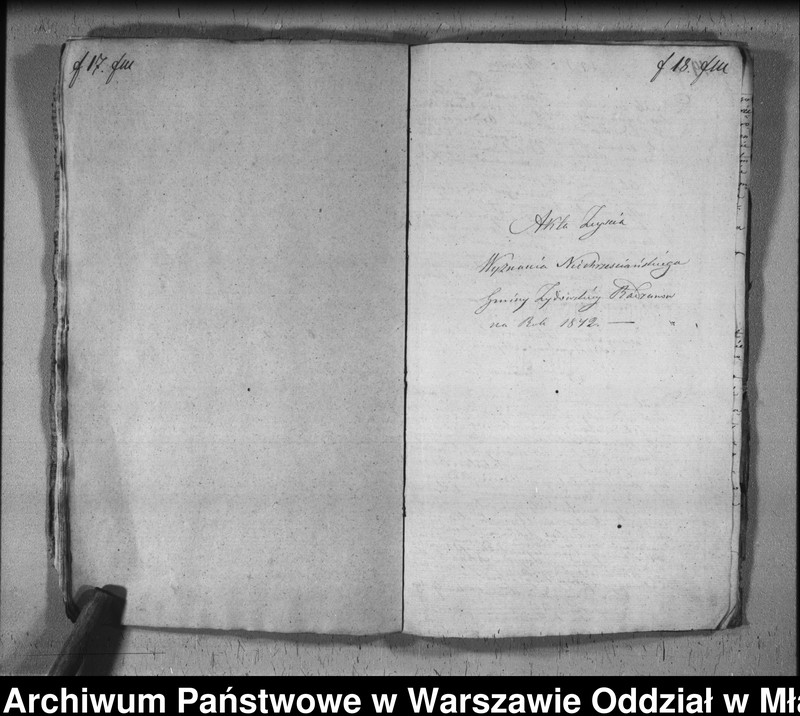 f 17. fm
f 18. fm
Akta Zeyscia
Wyznania Niechrześciańskiego
Gminy Żydowskiéy Radzanow
na Rok 1842. —
Archiwum Państwowe w Warszawie Oddział w Mła